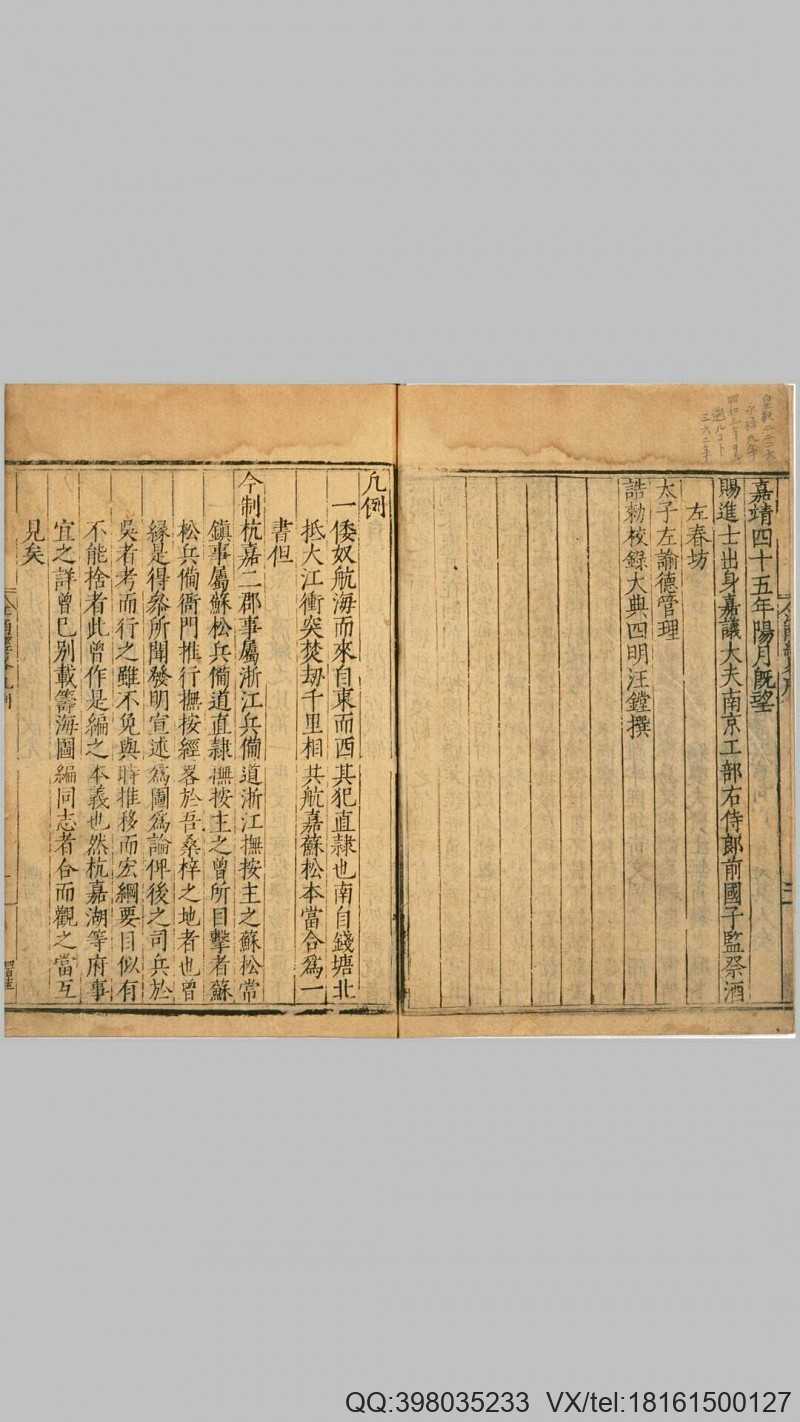 嘉靖四十五年陽月旣望
賜進士出身嘉議大夫南京工部右侍郎前國子監祭酒
左春坊
太子左諭德管理
誥勅校録大典四明汪鏜撰
凡例
一倭奴航海而來自東而西其犯直隷也南自錢塘北
抵大江衝突焚刼千里相共杭嘉蘇松本當合爲一
書但
今制杭嘉二郡事屬浙江兵備道浙江撫按主之蘇松常
鎮事屬蘇松兵備道直隷撫按主之曾所目擊者蘇
松兵備衙門推行撫按經畧於吾桑梓之地者也曾
縁是得叅所聞發明宣述爲圖爲論俾後之司兵於
吳者考而行之雖不免與時推移而宏綱要目似有
不能捨者此曾作是編之本義也然杭嘉湖等府事
宜之詳曾已别載籌海圖編同志者合而觀之當互
見矣
QQ:398035233 VX/tel:18161500127